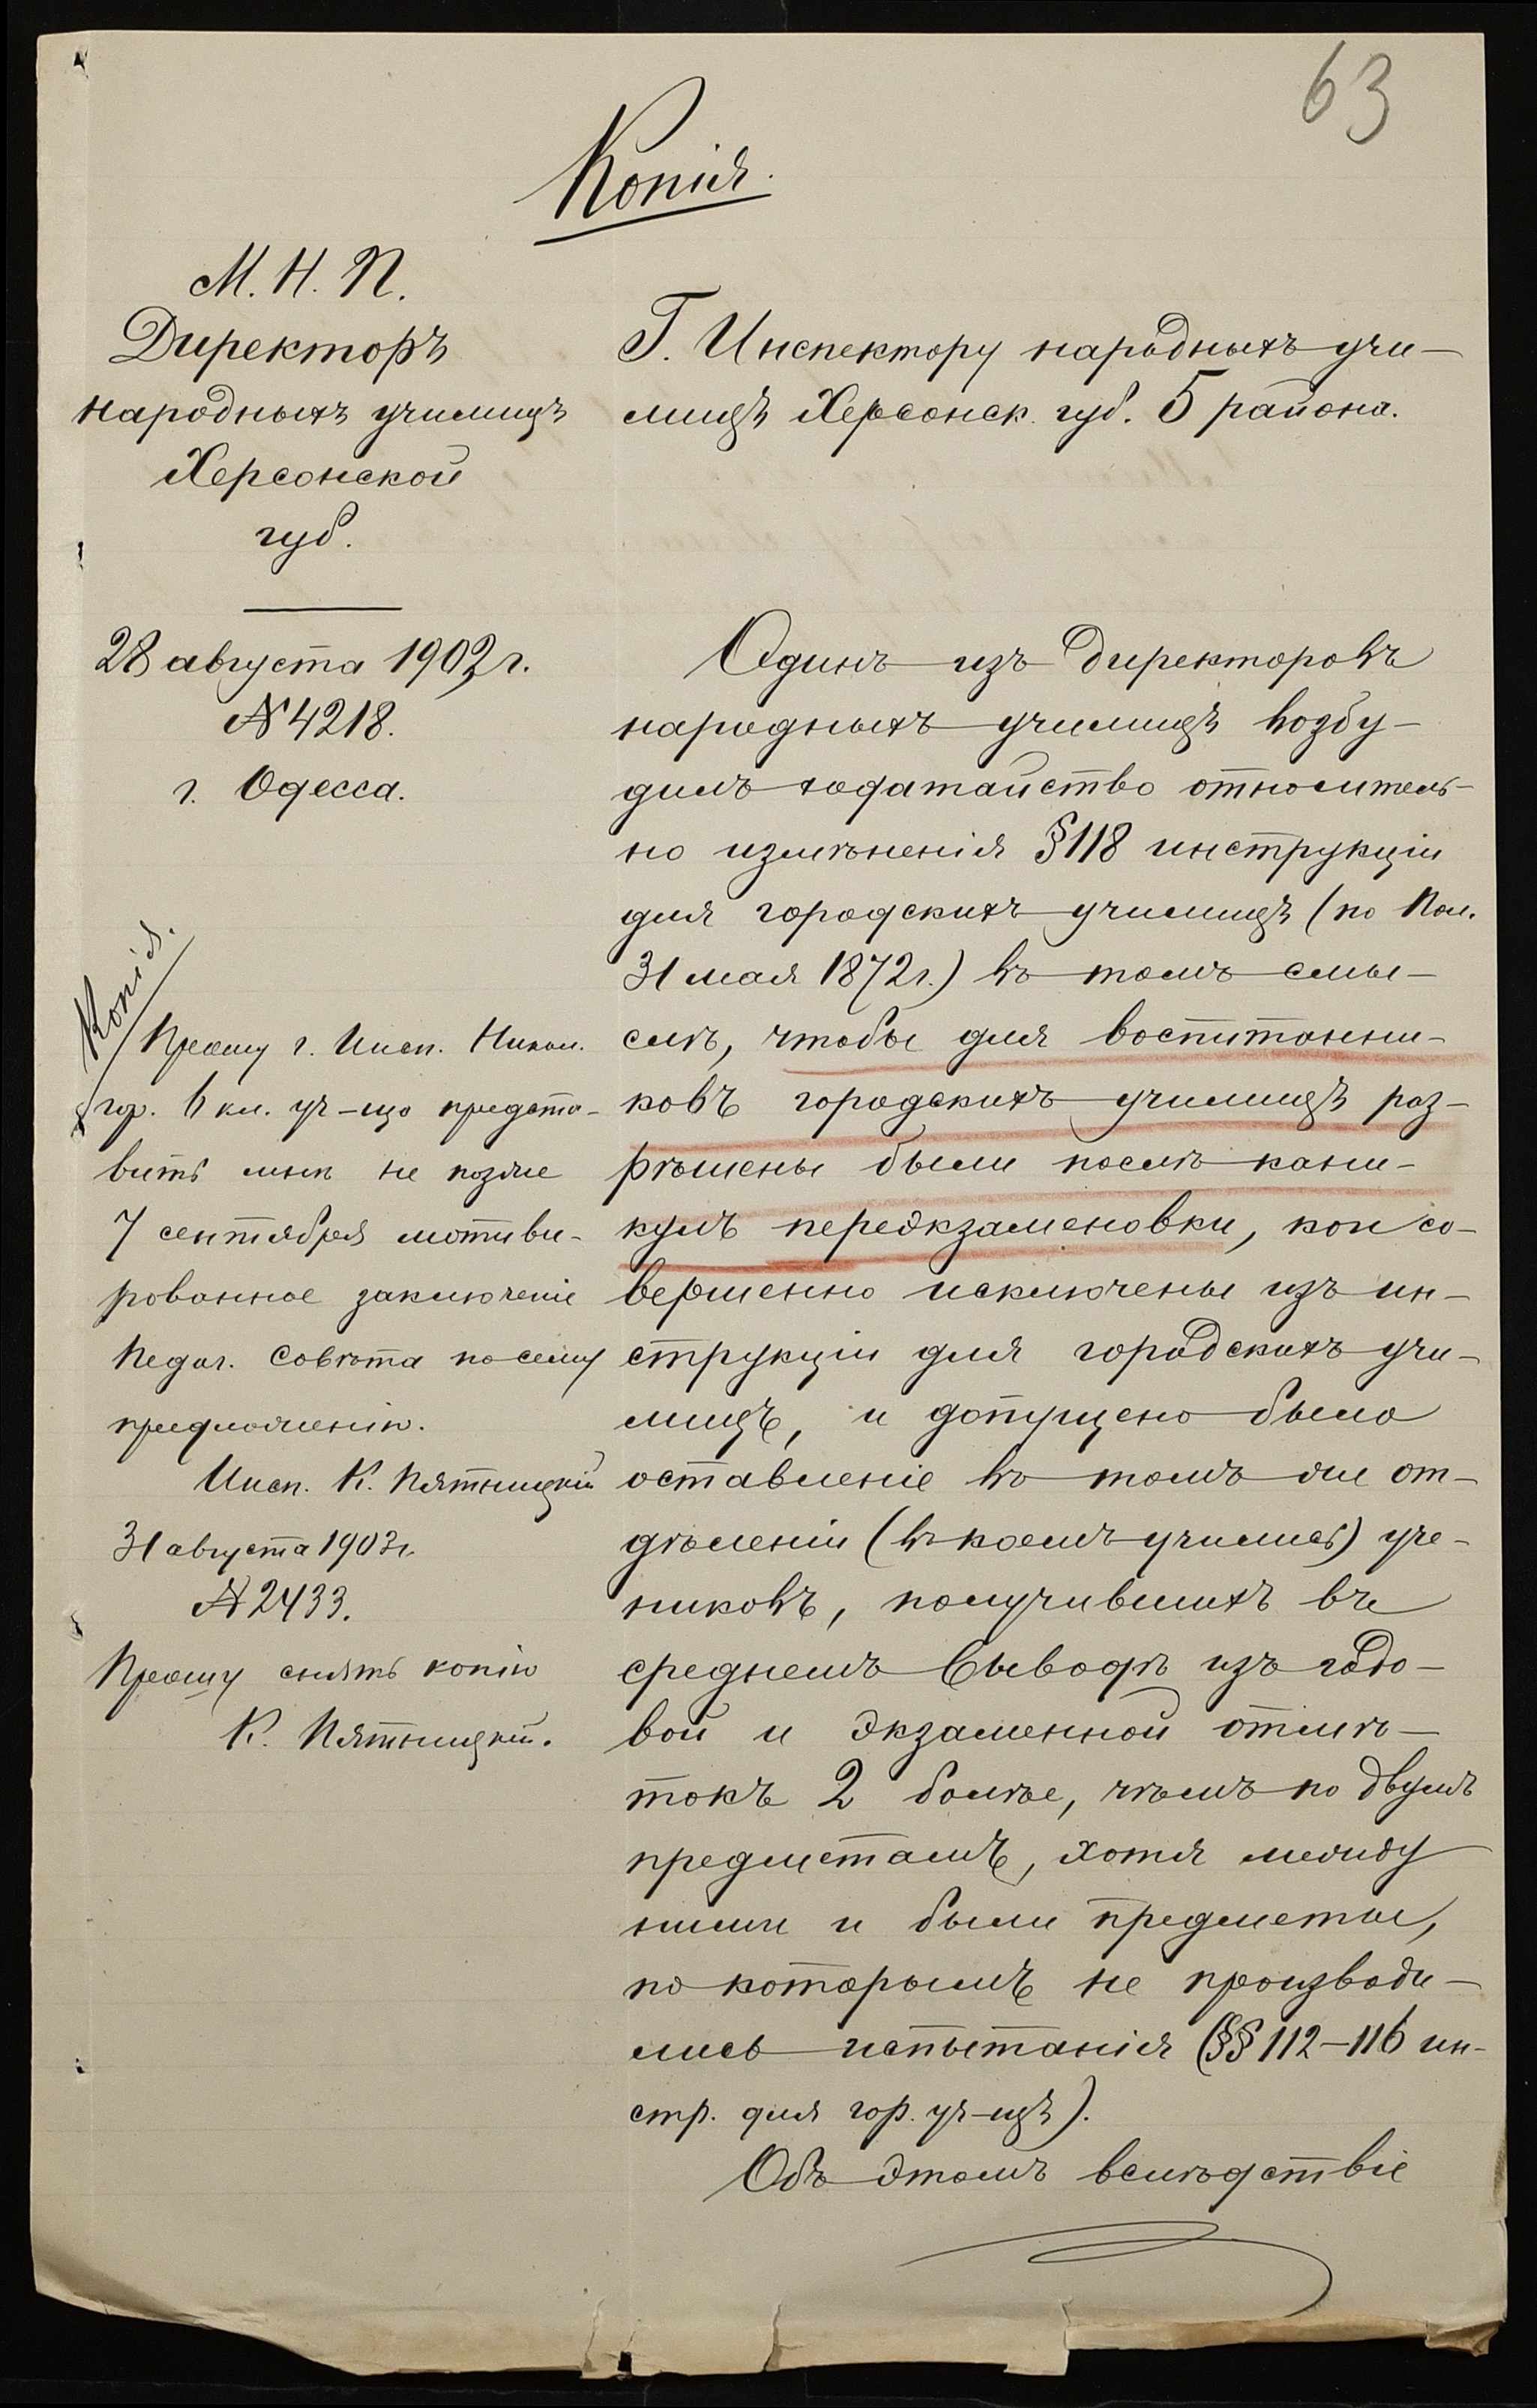 63
Копія.
М. Н. П.
Директоръ
народныхъ училищъ
Херсонской
губ.
28 августа 1902 г.
№ 4218.
г. Одесса.
Копія.
Прошу г. Инсп. Никол.
гор. 6 кл. уч-ща предста-
вить мнѣ не позже
7 сентября мотиви-
рованное заключеніе
Педаг. Совѣта по сему
предложенію.
Инсп. К. Пятницкій
31 августа 1902 г.
№ 2433.
Прошу снять копію
К. Пятницкій.
Г. Инспектору народныхъ учи-
лищъ Херсонск. губ. 5 района.
Одинъ изъ Директоровъ
народныхъ училищъ возбу-
дилъ ходатайство относитель-
но измѣненія § 118 инструкціи
для городскихъ училищъ (по Пол.
31 мая 1872 г.) въ томъ смы-
слѣ, чтобы для воспитанни-
ковъ городскихъ училищъ раз-
рѣшены были послѣ кани-
кулъ переэкзаменовки, кои со-
вершенно исключены изъ ин-
струкціи для городскихъ учи-
лищъ, и допущено было
оставленіе въ томъ же от-
дѣленіи (въ коемъ учились) уче-
никовъ, получившихъ въ
среднемъ выводѣ изъ годо-
вой и экзаменной отмѣ-
токъ 2 болѣе, чѣмъ по двумъ
предметамъ, хотя между
ними и были предметы,
по которымъ не производи-
лись испытанія (§§ 112–116 ин-
стр. для гор. уч-щъ).
Объ этомъ вслѣдствіе